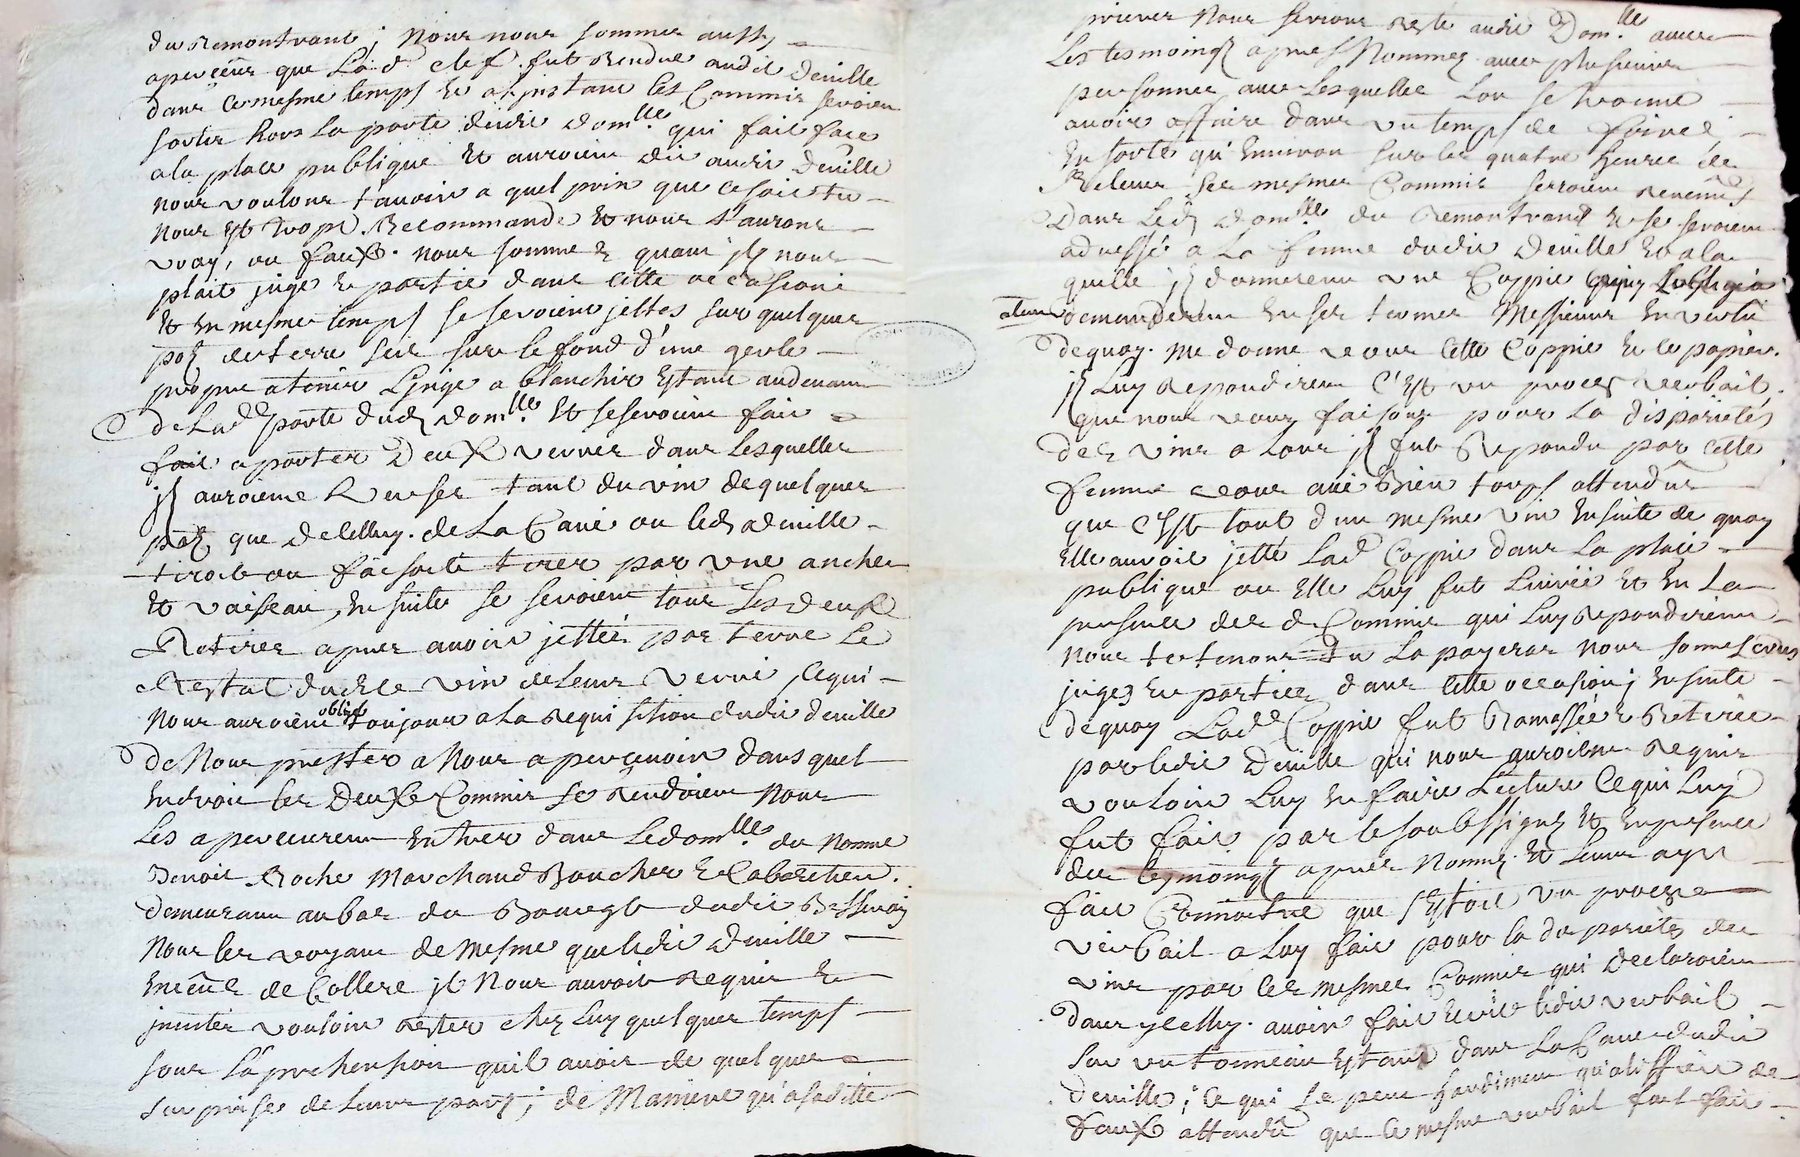 du Remontrant ; Nour nour sommer aussy
aperçeûr que La d. clef fut Rendue audit deville
dans le mesme temps et a linstant les Commis seroien
sortir hors la porte dudit dom.lle qui fait face
a la place publique et auroient dit audit deville
nous voulons t'avoir a quel prix que ce soit tu
nous est trop Recommandé et nous t'aurons
vray, ou faux. nous sommes quant il nous
plait juge et partie dans cette occasion
et en mesme temps se seroient jettes sur quelques
pot de terre sur le fond d'une gerle
propre a tenir Linge a blanchir estant audevant
de Lad.e porte dud. dom.lle et se seroient fait
fait aporter deux verres dans lesquelles
il auroient Verser tant du vin de quelques
pot que de celluy de La Cave ou led. deville
tiroit ou faisoit tirer par une anche
et vaisseau, ensuite se seroient tous les deux
Retirer apres avoir jetté par terre Le
Restat dudt vin de leur verre, ce qui
nous auroient obligé toujours a la Requisition dudit deville
de Nous prester a Nous apercevoir dans quel
endroit les deux Commis se rendroient Nous
les aperceurent entrer dans le dom.lle du Nomme
Benoit Roche Marchand Boucher et Cabaretier
demeurant au bas du Bourgt dudit Bessenay
Nous les voyant de mesme que ledit deville
de Collere il Nous auroit Requis et
inviter vouloir rester chez Luy quelques temps
sous L'aprehension quil avoit de quelques
surprises de leurs part ; de Maniere qu'a sa ditte
priere Nous serions resté audit Dom.lle avec
Les tesmoings apres Nommez avec plusieurs
personnes avec lesquelles Lon se trouve
avoir affaire dans un temps de foire
En sorte qu'environ sur les quatre heures de
Relevée les mesmes Commis serroient Revenûs
dans led. dom.lle du Remontrant et se seroient
adressé a La femme dudit deville et a la
quelle il donnerent une Coppie
demanderent en ses termes Messieurs en vertu
de quoy me donne vous cette Coppie et ce papier.
il Luy repondirent c'est un proces verbail
que nous vous faisons pour la disparietés
des vins a Lors il fut Repondu par cette
femme vous avé Bien torps attendûs
que c'est tout d'un mesme vin ensuite de quoy
Elle auroit jetté Lad.e Coppie dans la place
publique ou elle Luy fut Livrée et en La
presence des d. Commis qui Luy repondirent
Nous te tenons tu La payeras nous sommes
juges et parties dans cette occasion ; ensuite
de quoy Lad.e Coppie fut Ramassée et Retirée
par ledit deville qui nous auroient requis
vouloir Luy en faire Lecture ce qui Luy
fut fait par le soubssignez et en presence
des tesmoings apres Nommez et leurs ayant
fait Connoitre que s'estoit un proces
verbail a Luy fait pour la disparietés des
vins par les mesmes Commis qui declaroient
dans ycelluy avoir fait ledit verbail
sur un tonneau estant dans La Cave dudit
deville ; ce qui se peut hardiment qualiffier de
faux attendû que le mesme verbail fut fait